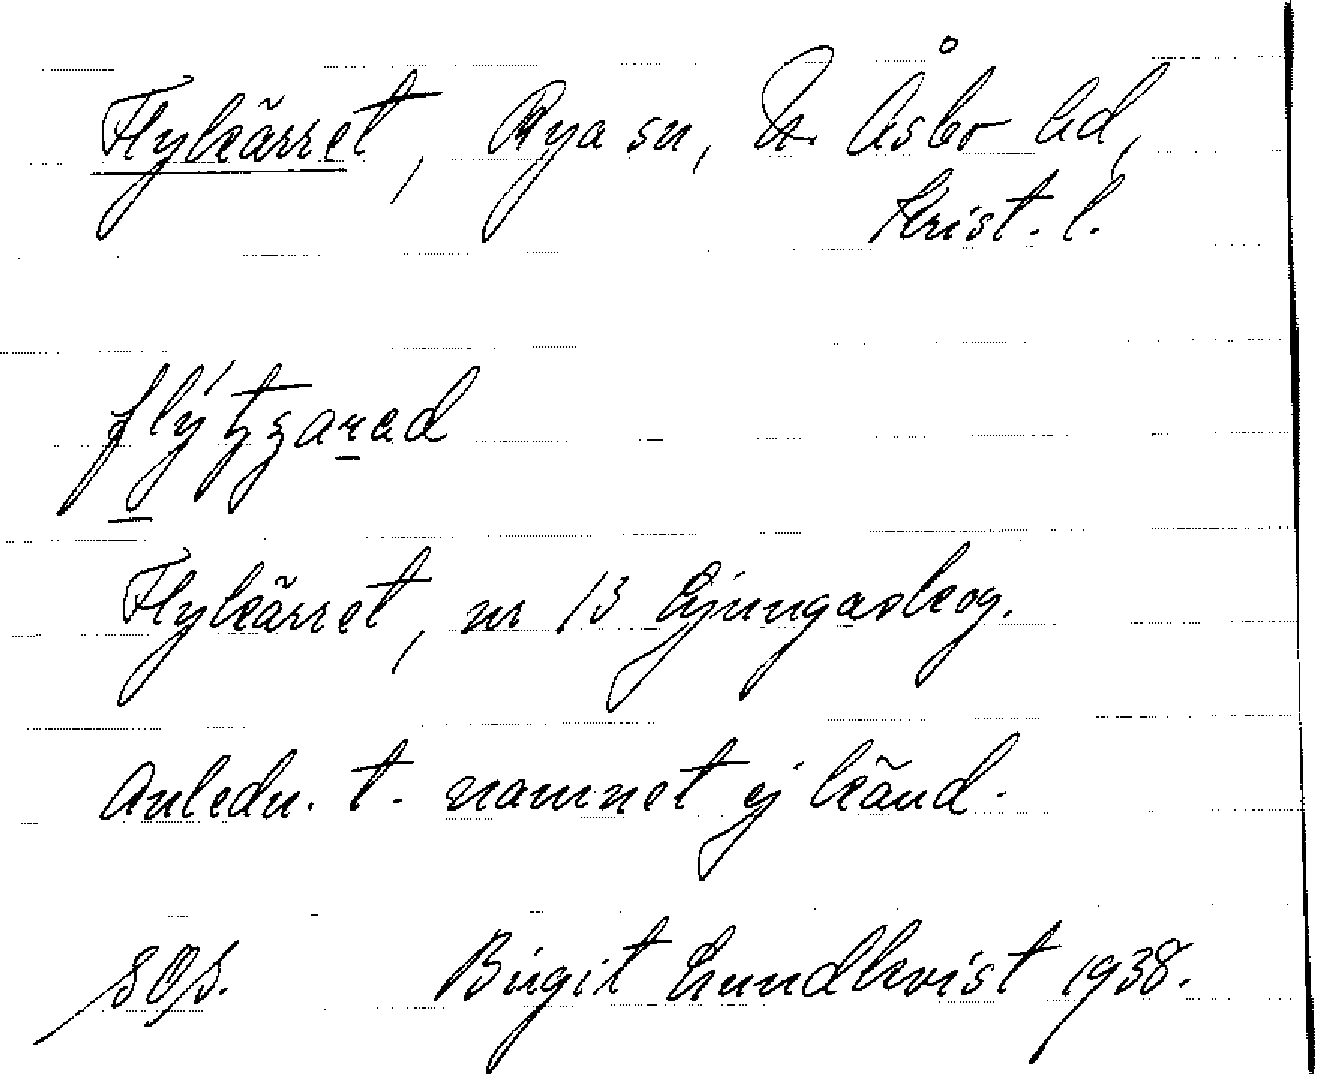 Flykärret, Rya sn, N. Åsbo hd,
Krist. l.
Flykärret, nr 13 Ljungaskog.
Anledn. t. namnet ej känd.
Birgit Lundkvist 1938.